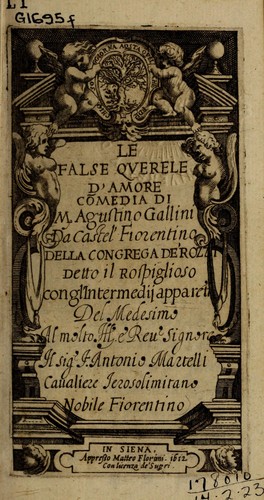 LI
G1695f
LE
FALSE QVERELE
D'AMORE
COMEDIA DI
M. Agustino Gallini
Da Castel' Fiorentino
DELLA CONGREGA DE ROZZI
detto il Rospiglioso
con gl'Intermedij apparen
Del Medesimo
Al molto Ill. e Reu. Signore
Il sig. F. Antonio Martelli
Caualiere Ierosolimitano
Nobile Fiorentino
IN SIENA.
Appresso Matteo Florimi. 1612
Con licenza de' Supri.
178010
14.2.23